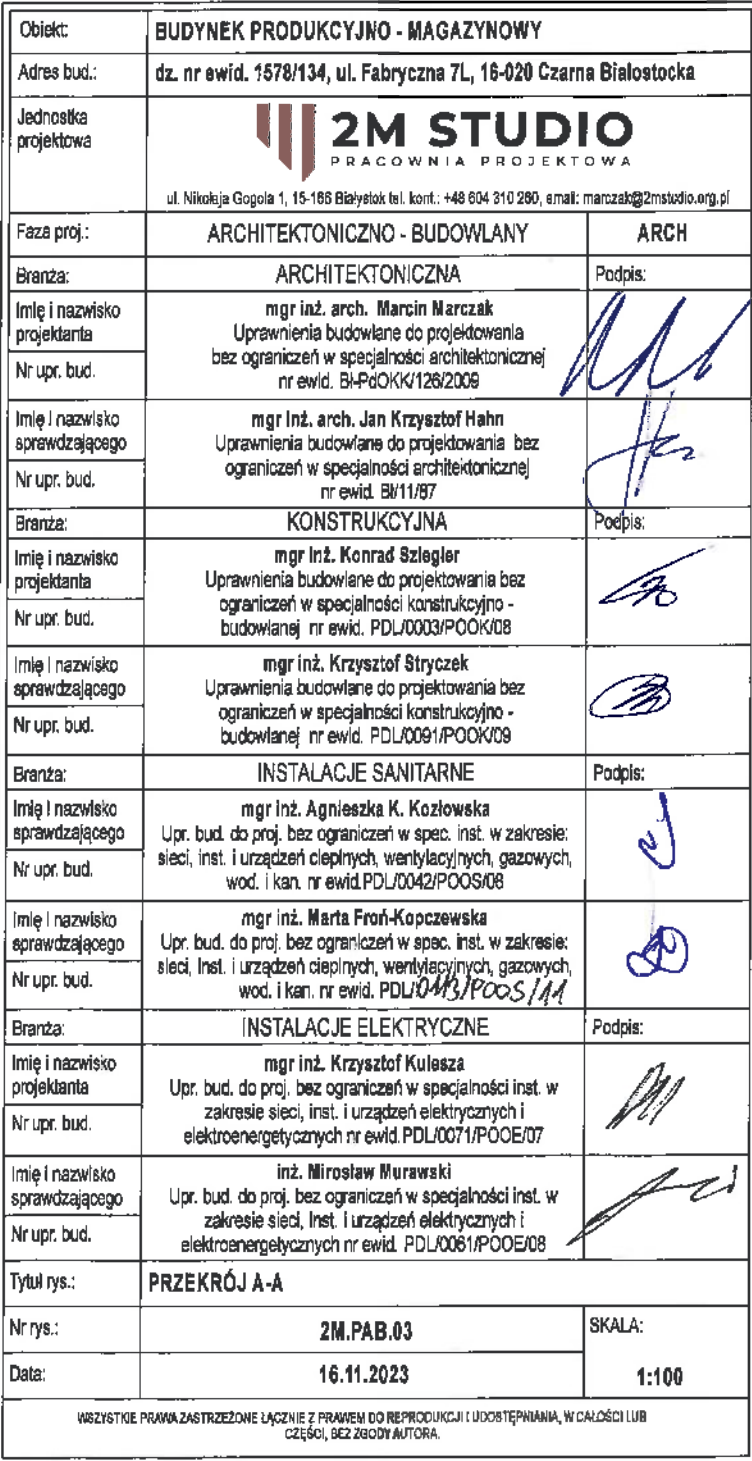 Obiekt: BUDYNEK PRODUKCYJNO - MAGAZYNOWY
Adres bud.: dz. nr ewid. 1578/134, ul. Fabryczna 7L, 16-020 Czarna Białostocka
Jednostka
projektowa
2M STUDIO
PRACOWNIA PROJEKTOWA
ul. Nikołaja Gogola 1, 15-166 Białystok tel. kont.: +48 604 310 260, email: marczak@2mstudio.org.pl
Faza proj.: ARCHITEKTONICZNO - BUDOWLANY ARCH
Branża: ARCHITEKTONICZNA Podpis:
Imię i nazwisko
projektanta
Nr upr. bud.
mgr inż. arch. Marcin Marczak
Uprawnienia budowlane do projektowania
bez ograniczeń w specjalności architektonicznej
nr ewid. Bł-PdOKK/126/2009
Imię i nazwisko
sprawdzającego
Nr upr. bud.
mgr inż. arch. Jan Krzysztof Hahn
Uprawnienia budowlane do projektowania bez
ograniczeń w specjalności architektonicznej
nr ewid. Bł/11/87
Branża: KONSTRUKCYJNA Podpis:
Imię i nazwisko
projektanta
Nr upr. bud.
mgr inż. Konrad Sziegler
Uprawnienia budowlane do projektowania bez
ograniczeń w specjalności konstrukcyjno -
budowlanej nr ewid. PDL/0003/POOK/08
Imię i nazwisko
sprawdzającego
Nr upr. bud.
mgr inż. Krzysztof Stryczek
Uprawnienia budowlane do projektowania bez
ograniczeń w specjalności konstrukcyjno -
budowlanej nr ewid. PDL/0091/POOK/09
Branża: INSTALACJE SANITARNE Podpis:
Imię i nazwisko
sprawdzającego
Nr upr. bud.
mgr inż. Agnieszka K. Kozłowska
Upr. bud. do proj. bez ograniczeń w spec. inst. w zakresie:
sieci, inst. i urządzeń cieplnych, wentylacyjnych, gazowych,
wod. i kan. nr ewid.PDL/0042/POOS/08
Imię i nazwisko
sprawdzającego
Nr upr. bud.
mgr inż. Marta Froń-Kopczewska
Upr. bud. do proj. bez ograniczeń w spec. inst. w zakresie:
sieci, inst. i urządzeń cieplnych, wentylacyjnych, gazowych,
wod. i kan. nr ewid. PDL/0113/POOS/11
Branża: INSTALACJE ELEKTRYCZNE Podpis:
Imię i nazwisko
projektanta
Nr upr. bud.
mgr inż. Krzysztof Kulesza
Upr. bud. do proj. bez ograniczeń w specjalności inst. w
zakresie sieci, inst. i urządzeń elektrycznych i
elektroenergetycznych nr ewid.PDL/0071/POOE/07
Imię i nazwisko
sprawdzającego
Nr upr. bud.
inż. Mirosław Murawski
Upr. bud. do proj. bez ograniczeń w specjalności inst. w
zakresie sieci, inst. i urządzeń elektrycznych i
elektroenergetycznych nr ewid. PDL/0061/POOE/08
Tytuł rys.: PRZEKRÓJ A-A
Nr rys.: 2M.PAB.03 SKALA:
Data: 16.11.2023 1:100
WSZYSTKIE PRAWA ZASTRZEŻONE ŁĄCZNIE Z PRAWEM DO REPRODUKCJI I UDOSTĘPNIANIA, W CAŁOŚCI LUB
CZĘŚCI, BEZ ZGODY AUTORA.